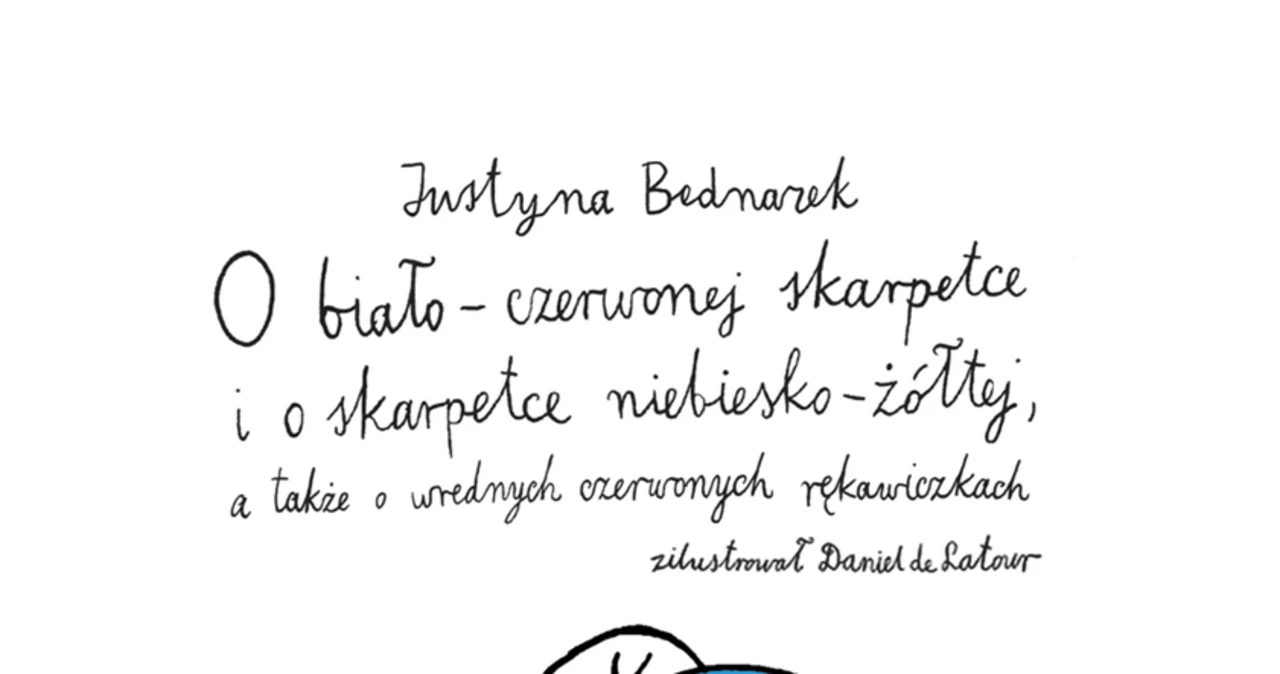 Justyna Bednarek
O biało-czerwonej skarpetce
i o skarpetce niebiesko-żółtej,
a także o wrednych czerwonych rękawiczkach
zilustrował Daniel de Latour